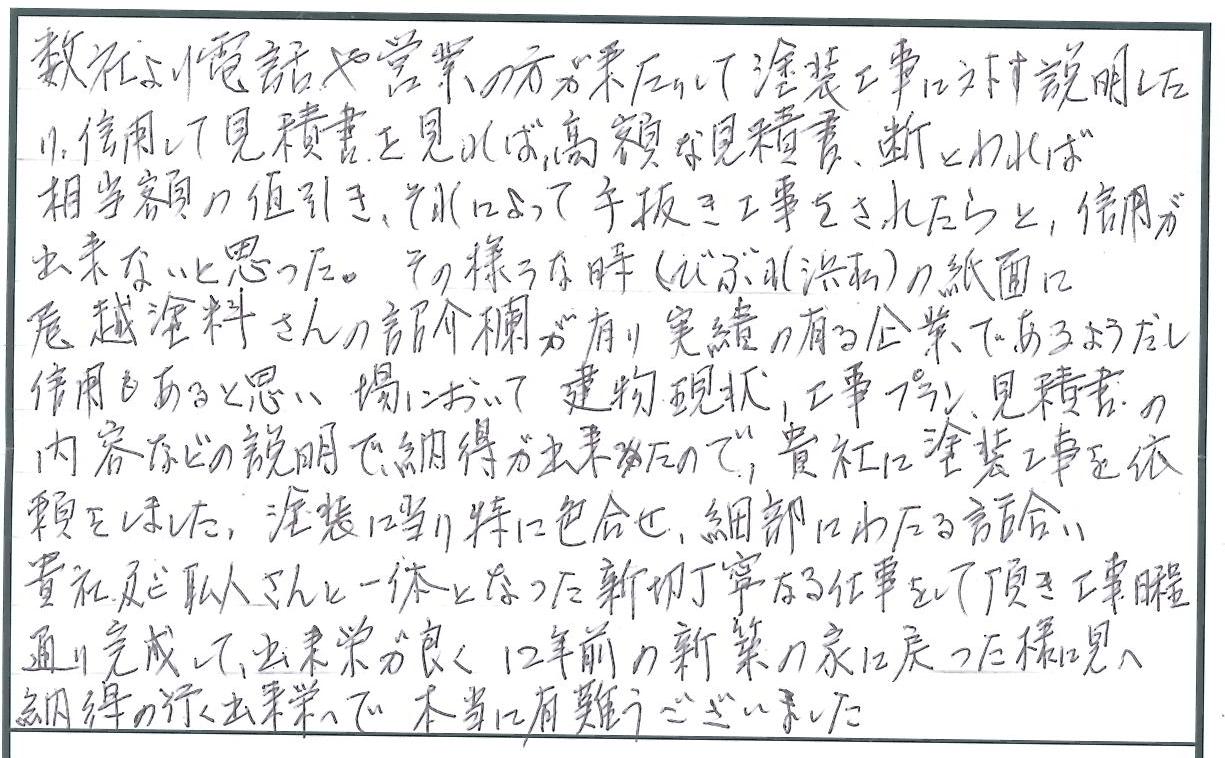 数社より電話や営業の方が来たりして塗装工事に対す説明した
り、信用して見積書を見れば、高額な見積書、断とわれば
相当額の値引き、それによって手抜き工事をされたらと、信用が
出来ないと思った。 その様うな時(びぶれ浜松)の紙面に
尾越塗料さんの紹介欄が有り実績の有る企業であるようだし
信用もあると思い 場において 建物現状、工事プラン、見積書の
内容などの説明で、納得が出来たので、貴社に塗装工事を依
頼をしました、塗装に当り特に色合せ、細部にわたる話合い
貴社及び職人さんと一体となった新切丁寧なる仕事をして頂き工事日程
通り完成して、出来栄が良く 12年前の新築の家に戻った様に見へ
納得の行く出来栄へで 本当に有難うございました